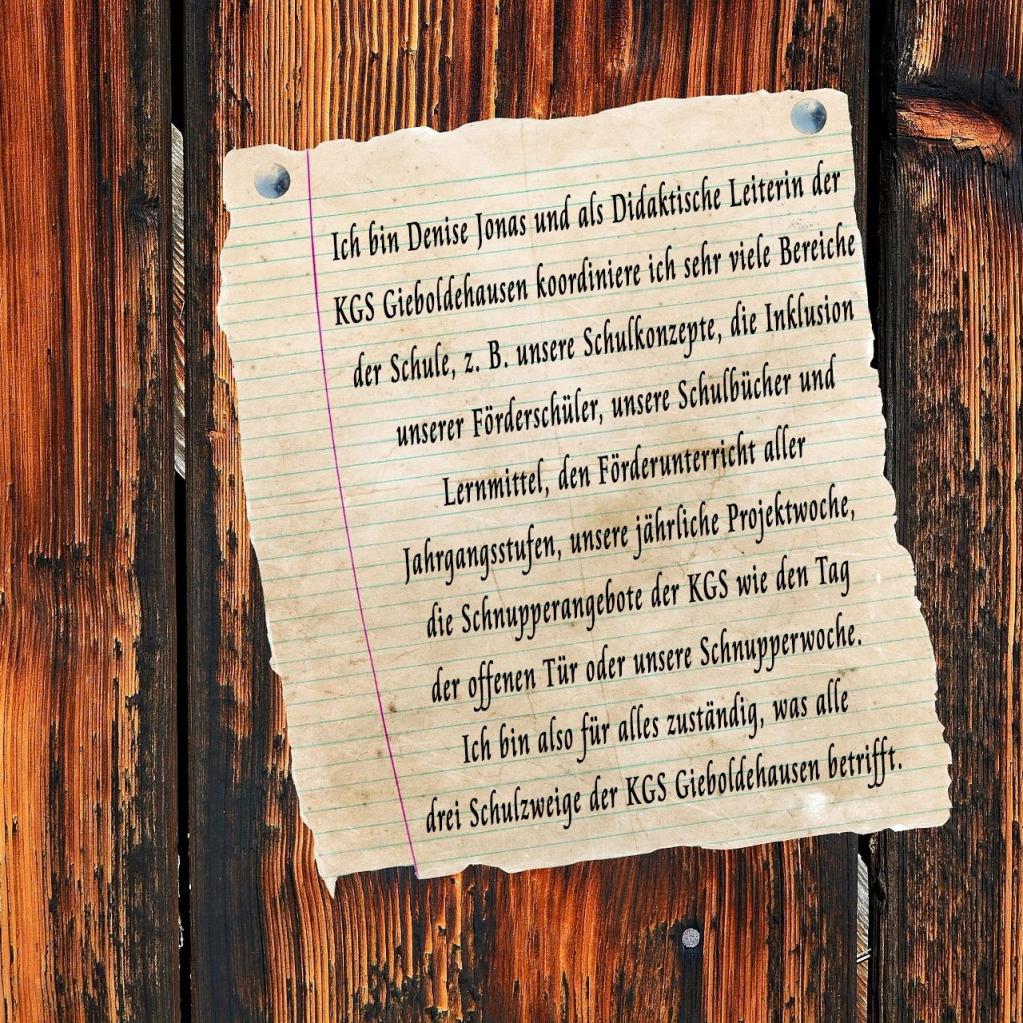 Ich bin Denise Jonas und als Didaktische Leiterin der
KGS Gieboldehausen koordiniere ich sehr viele Bereiche
der Schule, z. B. unsere Schulkonzepte, die Inklusion
unserer Förderschüler, unsere Schulbücher und
Lernmittel, den Förderunterricht aller
Jahrgangsstufen, unsere jährliche Projektwoche,
die Schnupperangebote der KGS wie den Tag
der offenen Tür oder unsere Schnupperwoche.
Ich bin also für alles zuständig, was alle
drei Schulzweige der KGS Gieboldehausen betrifft.